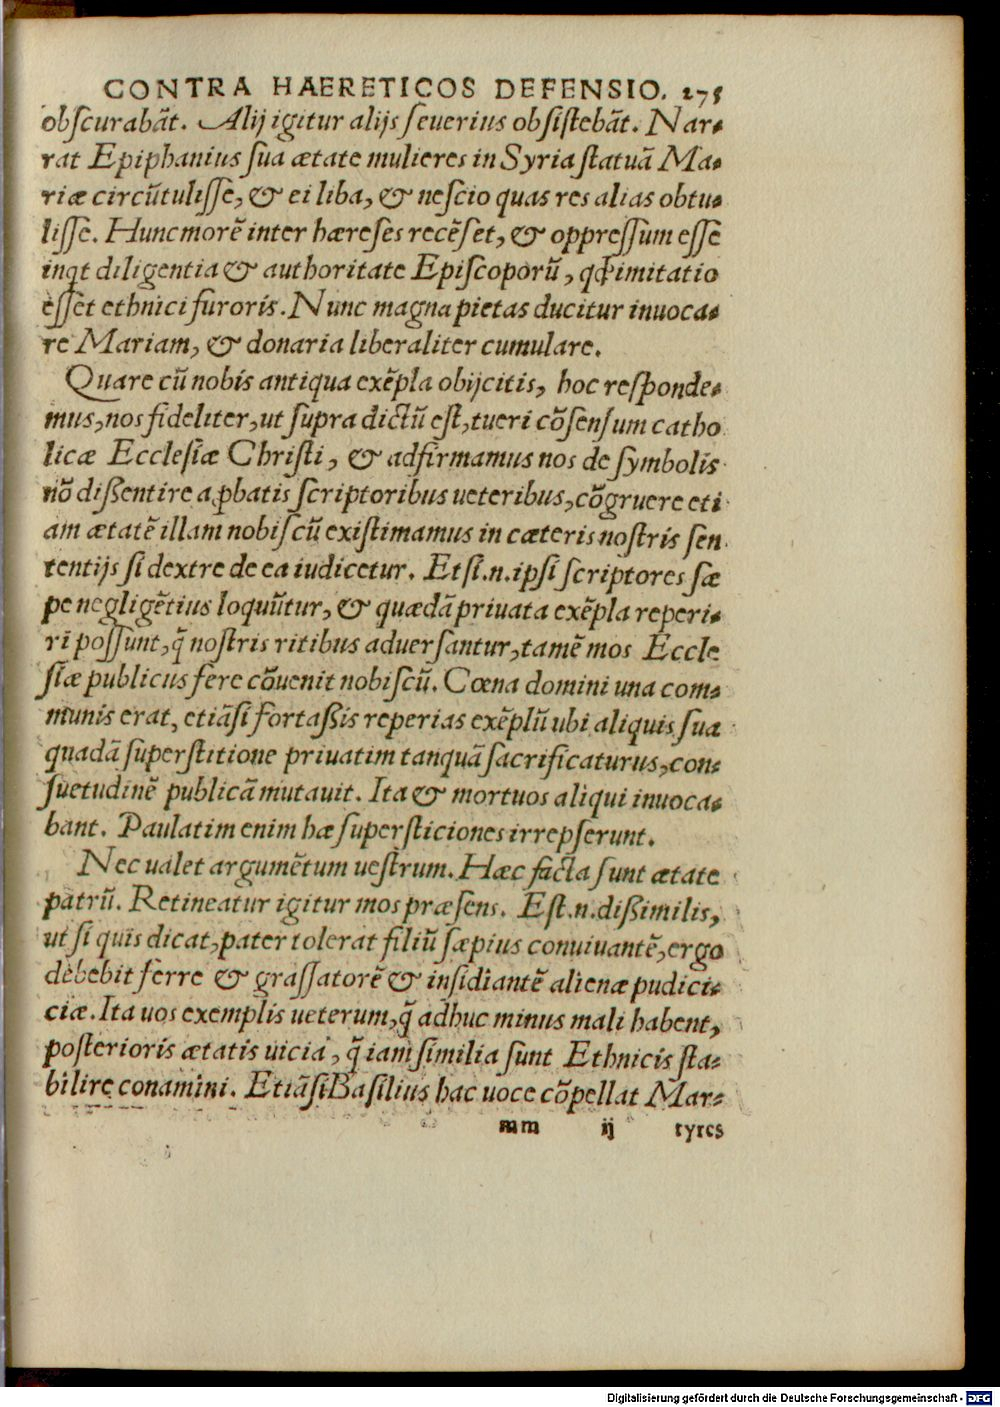 CONTRA HAERETICOS DEFENSIO. 275
obſcurabāt. Alij igitur alijs ſeuerius obſiſtebāt. Nar-
rat Epiphanius ſua ætate mulieres in Syria ſtatuā Ma-
riæ circūtuliſſe, & ei liba, & neſcio quas res alias obtu-
liſſe. Hunc morē inter hæreſes recēſet, & oppreſſum eſſe
inqt diligentia & authoritate Epiſcoporū, qꝙ imitatio
eſſet ethnici furoris. Nunc magna pietas ducitur inuoca-
re Mariam, & donaria liberaliter cumulare.
Quare cū nobis antiqua exēpla obijcitis, hoc reſponde-
mus, nos fideliter, ut ſupra dictū eſt, tueri cōſenſum catho
licæ Eccleſiæ Chriſti, & adfirmamus nos de ſymbolis
nō dißentire a ꝓbatis ſcriptoribus ueteribus, cōgruere eti
am ætatē illam nobiſcū exiſtimamus in cæteris noſtris ſen
tentijs ſi dextre de ea iudicetur. Etſi.n.ipſi ſcriptores ſæ
pe negligētius loquūtur, & quædā priuata exēpla reperi-
ri poſſunt, q̄ noſtris ritibus aduerſantur, tamē mos Eccle
ſiæ publicus fere cōuenit nobiſcū. Cœna domini una com-
munis erat, etiāſi fortaßis reperias exēplū ubi aliquis ſua
quadā ſuperſtitione priuatim tanquā ſacrificaturus, con-
ſuetudinē publicā mutauit. Ita & mortuos aliqui inuoca-
bant. Paulatim enim hæ ſuperſticiones irrepſerunt.
Nec ualet argumētum ueſtrum. Hæc facta ſunt ætate
patrū. Retineatur igitur mos præſens. Eſt.n.dißimilis,
ut ſi quis dicat, pater tolerat filiū ſæpius conuiuantē, ergo
debebit ferre & graſſatorē & inſidiantē alienæ pudici-
ciæ. Ita uos exemplis ueterum, q̄ adhuc minus mali habent,
poſterioris ætatis uicia, q̄ iam ſimilia ſunt Ethnicis ſta-
bilire conamini. Etiāſi Baſilius hac uoce cōpellat Mar-
mm ij tyres
Digitalisierung gefördert durch die Deutsche Forschungsgemeinschaft - DFG